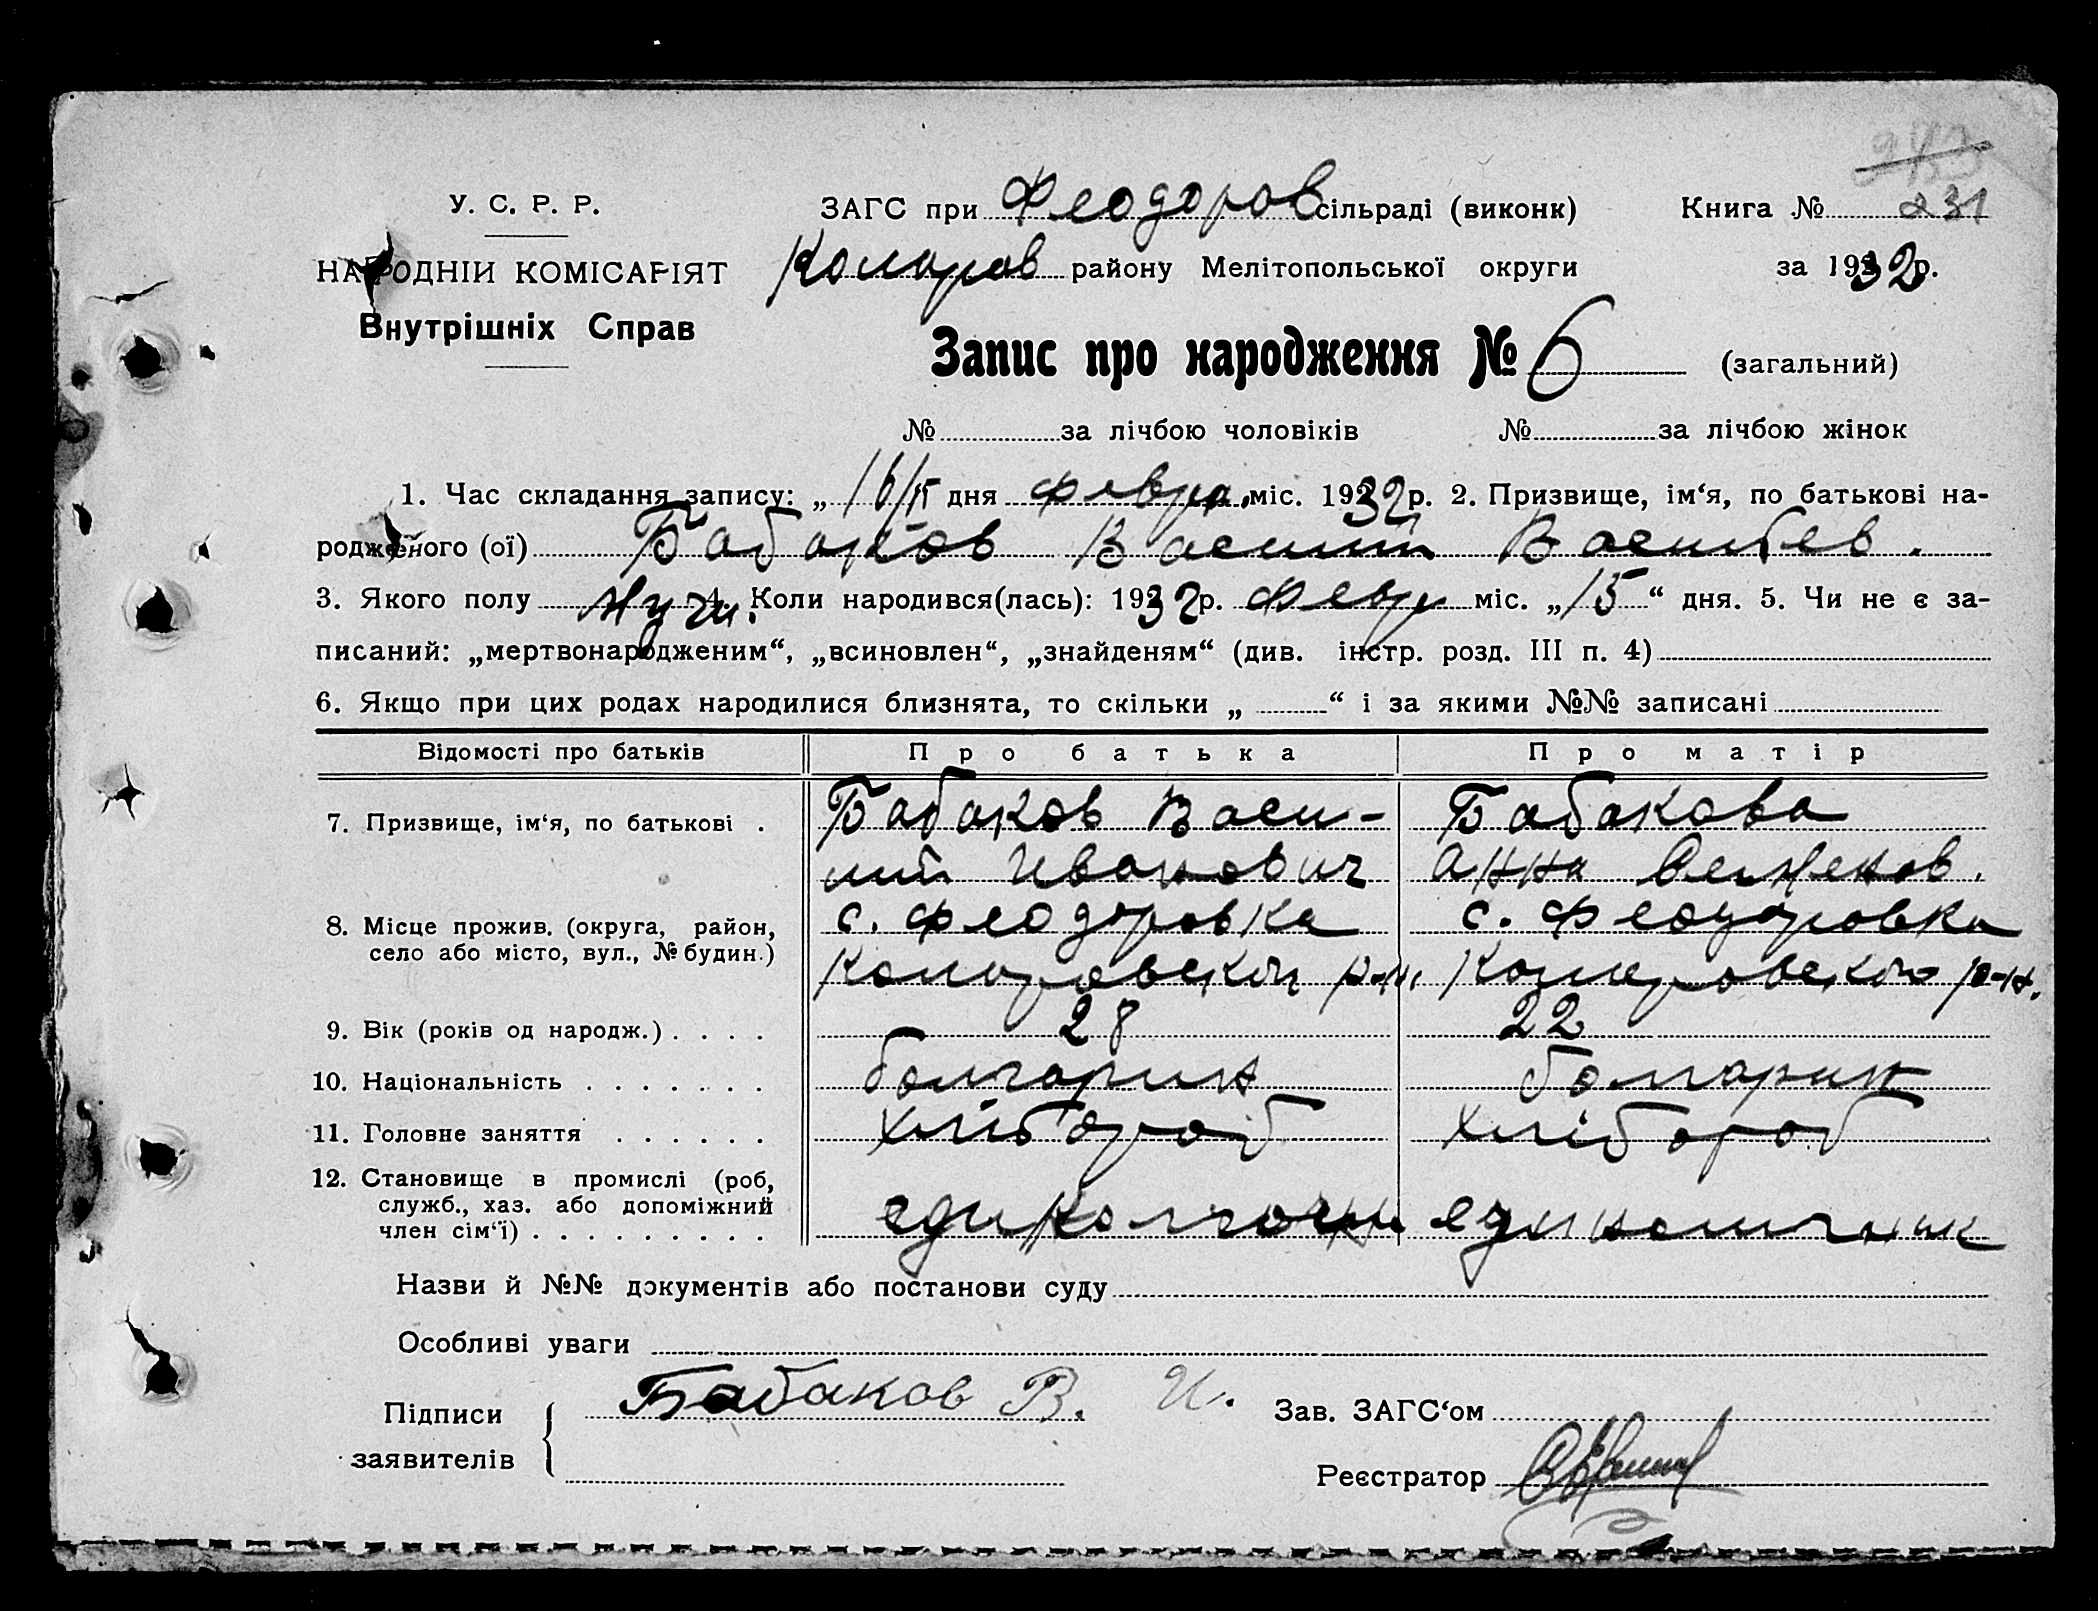 231
У. С. Р. Р.
НАРОДНІЙ КОМІСАРІЯТ
Внутрішніх Справ
ЗАГС при Феодоров сільраді (виконк)
Книга №
Коларов району Мелітопольської округи
за 1932 р.
Запис про народження № 6 (загальний)
№ за лічбою чоловіків № за лічбою жінок
1. Час складання запису: „ 16/ дня февр. міс. 1932 р. 2. Призвище, ім‘я, по батькові на-
родженого (ої) Бабаков Василий Васильев.
3. Якого полу муж. 4. Коли народився(лась): 1932 р. февр міс. „15“ дня. 5. Чи не є за-
писаний: „мертвонародженим“, „всиновлен“, „знайденям“ (див. інстр. розд. III п. 4)
6. Якщо при цих родах народилися близнята, то скільки „ “ і за якими №№ записані
Відомості про батьків Про батька Про матір
7. Призвище, ім‘я, по батькові . Бабаков Васи- Бабакова
лий Иванович Анна
8. Місце прожив. (округа, район, с. Феодоровка с. Феодоровка
село або місто, вул., № будин.) Коларовского р-н. Коларовского р-н.
9. Вік (років од народж.) . . . . 28 22
10. Національність . . . . . . . болгарин болгарин
11. Головне заняття . . . . . . хлібороб хлібороб
12. Становище в промислі (роб,
служб., хаз. або допоміжний
член сім‘ї) . . . . . . . . . единоличн единоличник
Назви й №№ документів або постанови суду
Особливі уваги
Підписи
заявителів
Бабаков В. И.
Зав. ЗАГС‘ом
Реєстратор